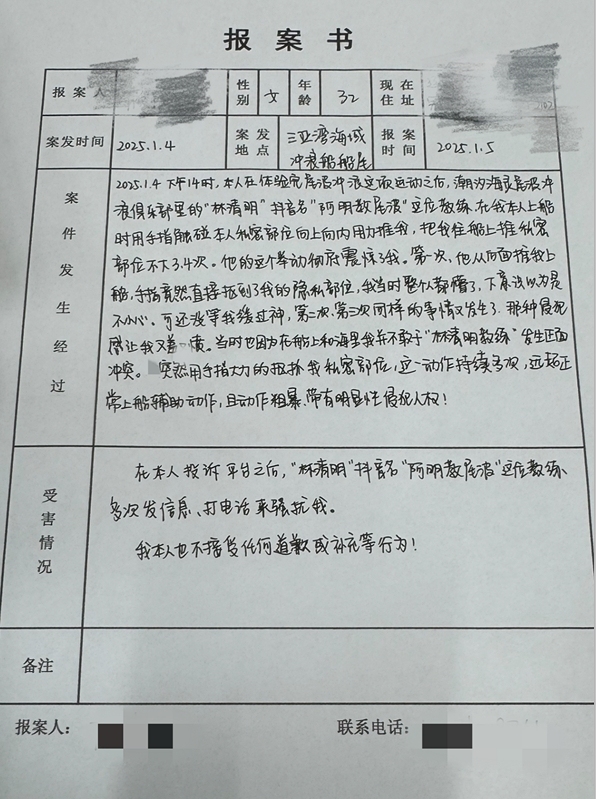 报案书
报案人 性别 女 年龄 32 现在住址
案发时间 2025.1.4 案发地点 三亚湾海域冲浪船船尾 报案时间 2025.1.5
案件发生经过
2025.1.4 下午14时,本人在体验完尾波冲浪这项运动之后,潮汐海灵尾波冲
浪俱乐部里的“林清明”抖音名“阿明教尾波”这位教练.在我本人上船
时用手指触碰本人私密部位向上向内用力推我,把我往船上推私密
部位不下3.4次。他的这个举动彻底震惊了我。第一次,他从后面推我上
船,手指竟然直接抠到了我的隐私部位,我当时整个人都懵了,下意识以为是
不小心。可还没等我缓过神,第二次.第三次同样的事情又发生了.那种侵犯
感让我又羞 愤。当时也因为在船上和海里我并不敢于“林清明教练”发生正面
冲突。 突然用手指大力的 我私密部位,这一动作持续多次,远超正
常上船辅助动作,且动作粗暴.带有明显性侵犯人权!
受害情况
在本人投诉平台之后,“林清明”抖音名“阿明教尾波”这位教练、
多次发信息、打电话来骚扰我。
我本人也不接受任何道歉或补充等行为!
备注
报案人: 联系电话: